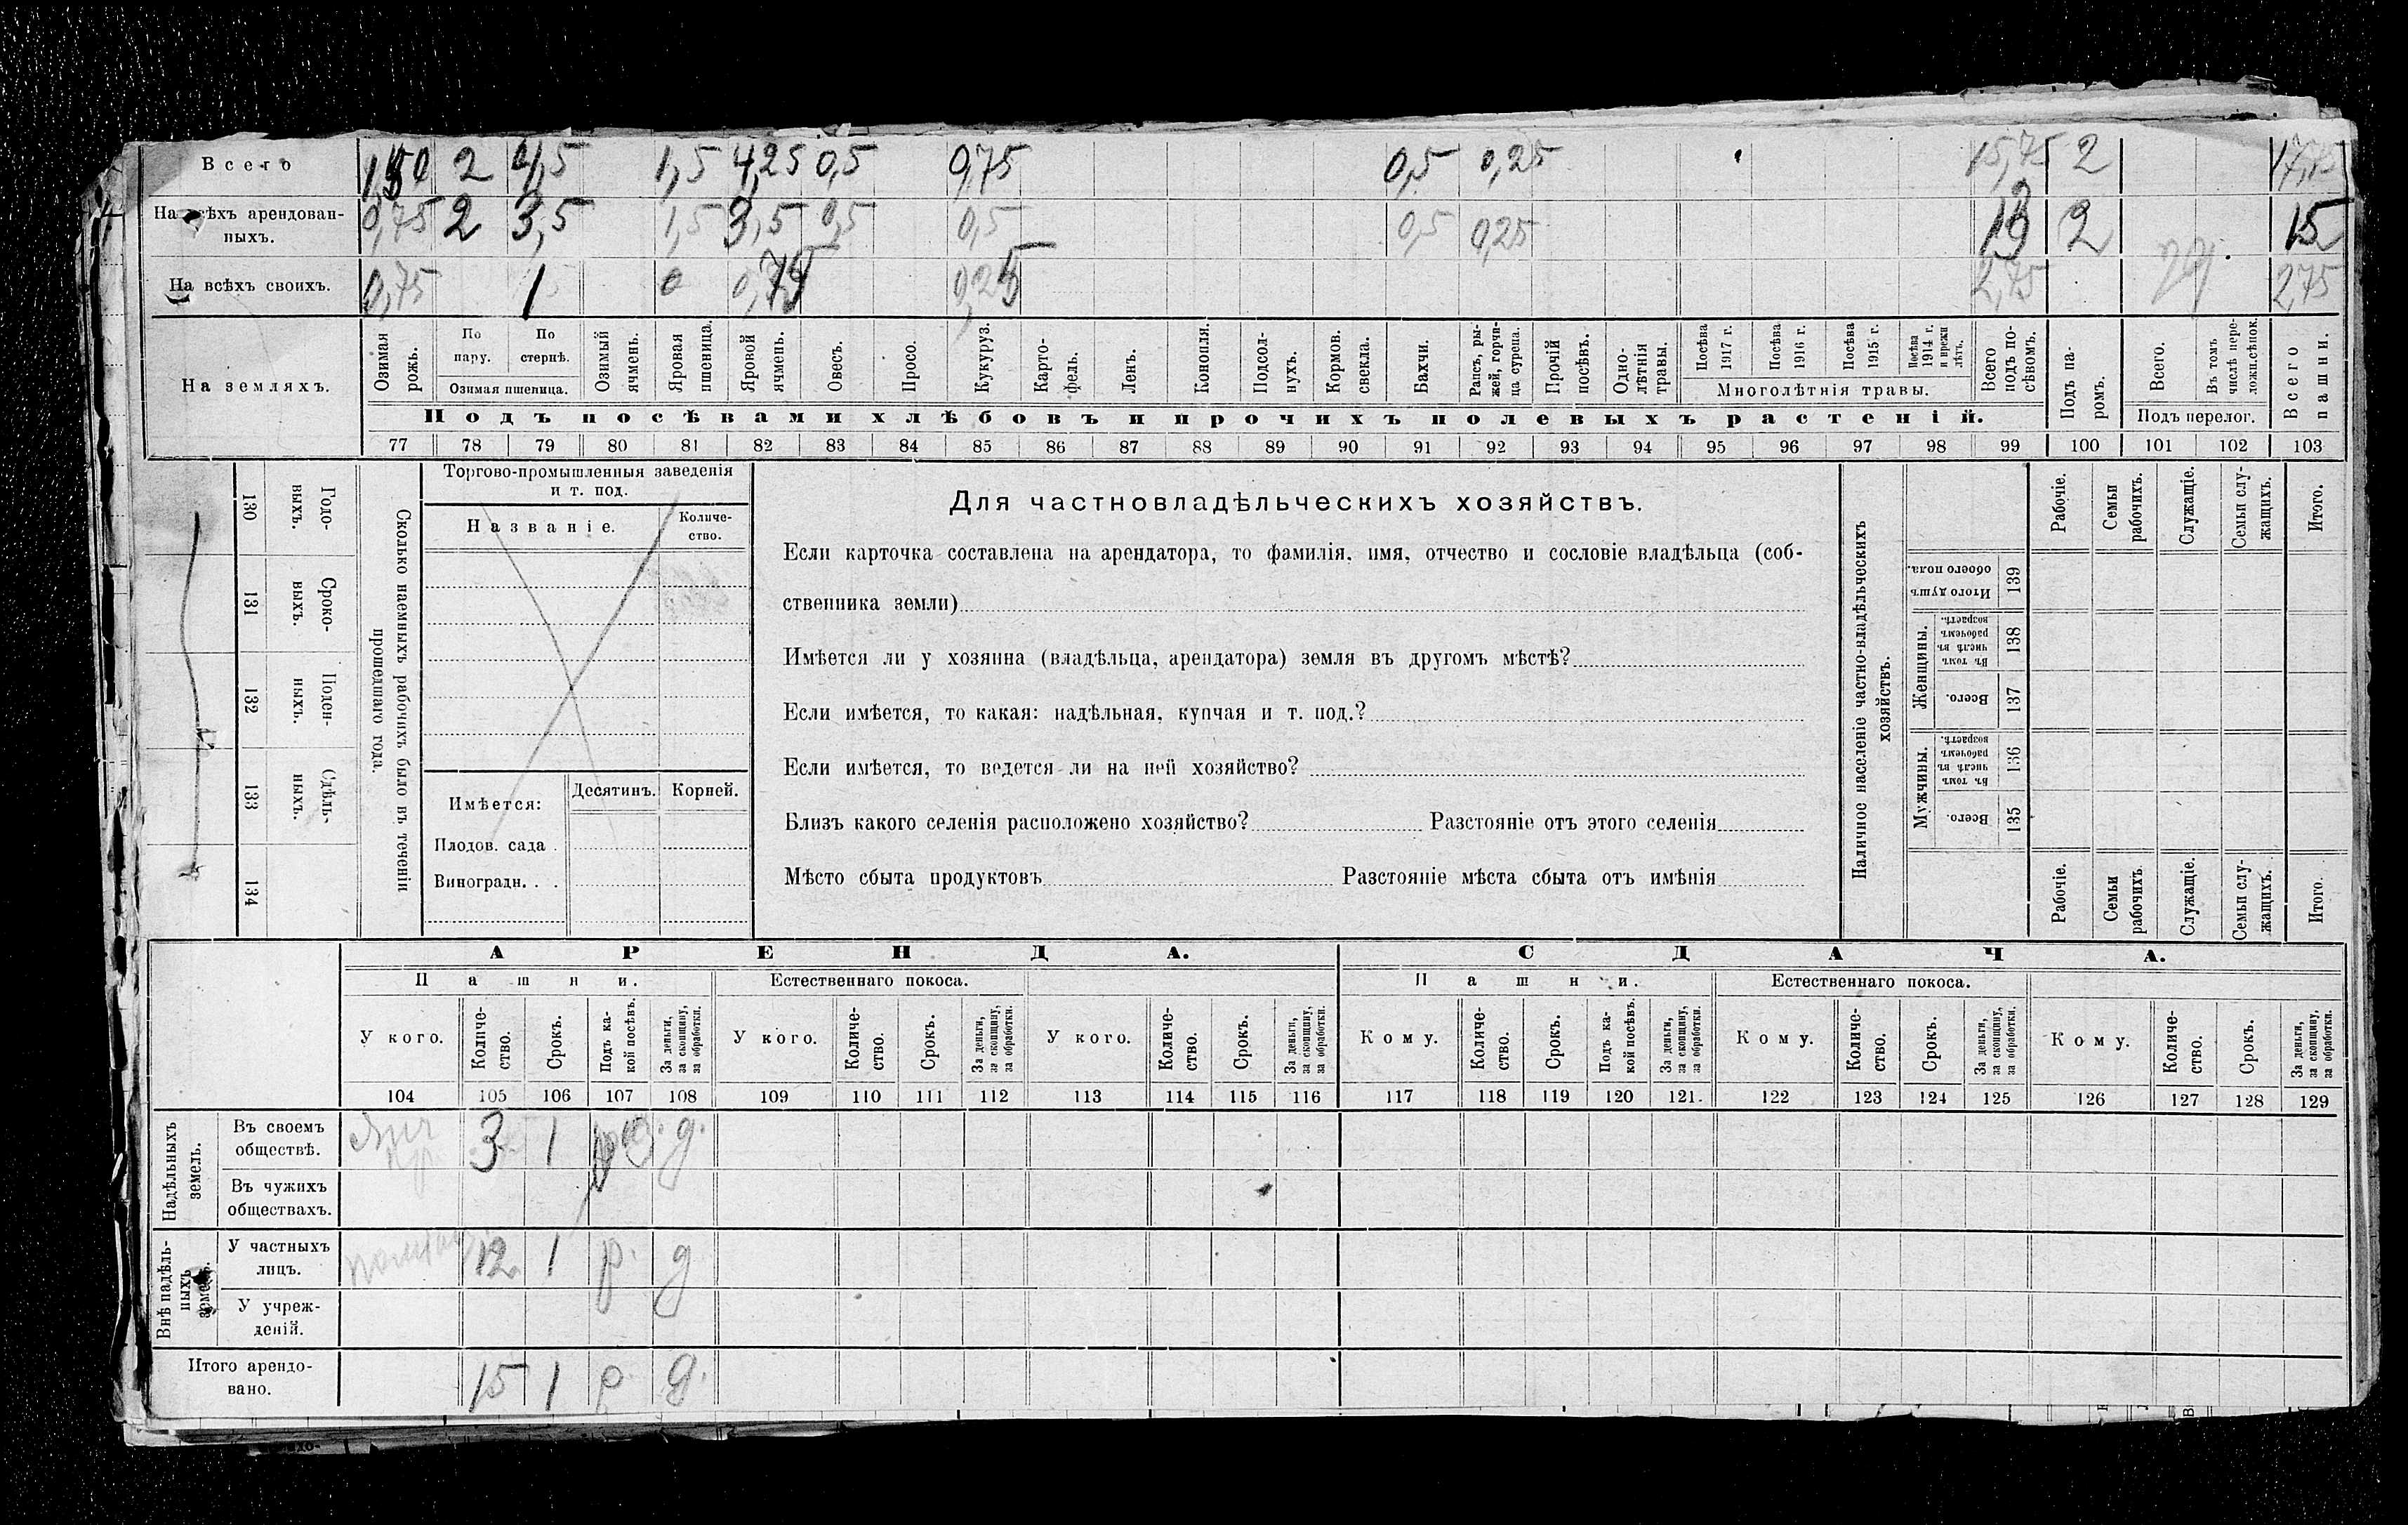 Всего 1,50 2 4,5 1,5 4,25 0,5 0,75 0,5 0,25 15,75 2 17,75
На всѣхъ арендован-
ныхъ. 0,75 2 3,5 1,5 3,5 0,5 0,5 0,5 0,25 13 2 15
На всѣхъ своихъ. 0,75 1 0,75 0,25 2,75 2,75
На земляхъ.
Озимая рожь.
По пару.
По стернѣ.
Озимая пшеница.
Озимый ячмень.
Яровая пшеница.
Яровой ячмень.
Овесъ.
Просо.
Кукуруз.
Карто-
фель.
Ленъ.
Конопля.
Подсол-
нухъ.
Кормов. свекла.
Бахчи.
Рапсъ, ры-
жей, горчи-
ца сурепа.
Прочій посѣвъ.
Одно-
лѣтнія травы.
Посѣва 1917 г.
Посѣва 1916 г.
Посѣва 1915 г.
Посѣва 1914 г. и прежн лѣтъ.
Многолѣтнія травы.
Всего подъ по-
сѣвомъ.
Подъ па-
ромъ.
Всего.
Въ томъ числѣ пере-
ложн.сѣнок.
Подъ перелог.
Всего пашни.
Подъ посѣвами хлѣбовъ и прочихъ полевыхъ растеній.
77 78 79 80 81 82 83 84 85 86 87 88 89 90 91 92 93 94 95 96 97 98 99 100 101 102 103
130 Годо-
выхъ.
131 Сроко-
ныхъ.
132 Поден-
ныхъ.
133 Сдѣль-
ныхъ.
134
Сколько наемныхъ рабочихъ было въ теченіи
прошедшаго года.
Торгово-промышленныя заведенія
и т. под.
Названіе.
Количе-
ство.
Имѣется:
Десятинъ.
Корней.
Плодов. сада .
Виноградн. . .
Для частновладѣльческихъ хозяйствъ.
Если карточка составлена на арендатора, то фамилія, имя, отчество и сословіе владѣльца (соб-
ственника земли)
Имѣется ли у хозяина (владѣльца, арендатора) земля въ другомъ мѣстѣ?
Если имѣется, то какая: надѣльная, купчая и т. под.?
Если имѣется, то ведется ли на ней хозяйство?
Близъ какого селенія расположено хозяйство? Разстояніе отъ этого селенія
Мѣсто сбыта продуктовъ Разстояніе мѣста сбыта отъ имѣнія
Наличное населеніе частно-владѣльческихъ
хозяйствъ.
Рабочіе.
Семьи рабочихъ.
Служащіе.
Семьи слу-
жащихъ.
Итого.
Итого душъ обоего пола. 139
Женщины.
Въ томъ числѣ въ рабочемъ возрастѣ. 138
Всего. 137
Мужчины.
Въ томъ числѣ въ рабочемъ возрастѣ. 136
Всего. 135
Рабочіе.
Семьи рабочихъ.
Служащіе.
Семьи слу-
жащихъ.
Итого.
АРЕНДА.
СДАЧА.
Пашни.
Естественнаго покоса.
Пашни.
Естественнаго покоса.
У кого.
Количе-
ство.
Срокъ.
Подъ ка-
кой посѣвъ.
За деньги, за скопщину, за обработки.
У кого.
Количе-
ство.
Срокъ.
За деньги, за скопщину, за обработки.
У кого.
Количе-
ство.
Срокъ.
За деньги, за скопщину, за обработки.
Кому.
Количе-
ство.
Срокъ.
Подъ ка-
кой посѣвъ.
За деньги, за скопщину, за обработки.
Кому.
Количе-
ство.
Срокъ.
За деньги, за скопщину, за обработки.
Кому.
Количе-
ство.
Срокъ.
За деньги, за скопщину, за обработки.
104 105 106 107 108 109 110 111 112 113 114 115 116 117 118 119 120 121. 122 123 124 125 126 127 128 129
Надѣльныхъ земель.
Въ своемъ
обществѣ. 3 1 д.
Въ чужихъ
обществахъ.
Внѣ надѣль-
ныхъ земель.
У частныхъ
лицъ. 12 1 р. д
У учреж-
деній.
Итого арендо-
вано. 15 1 р. д.